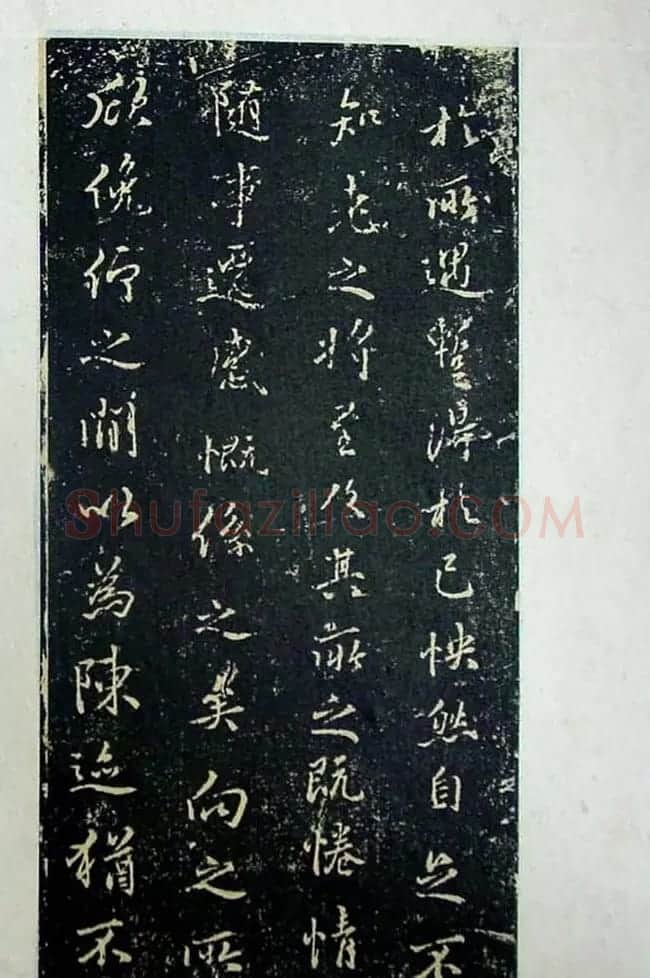 於所遇暫得於己怏然自足不
知老之將至及其所之既惓情
隨事遷感慨係之矣向之所
欣俛仰之閒以為陳迹猶不
Shufaziliao.COM